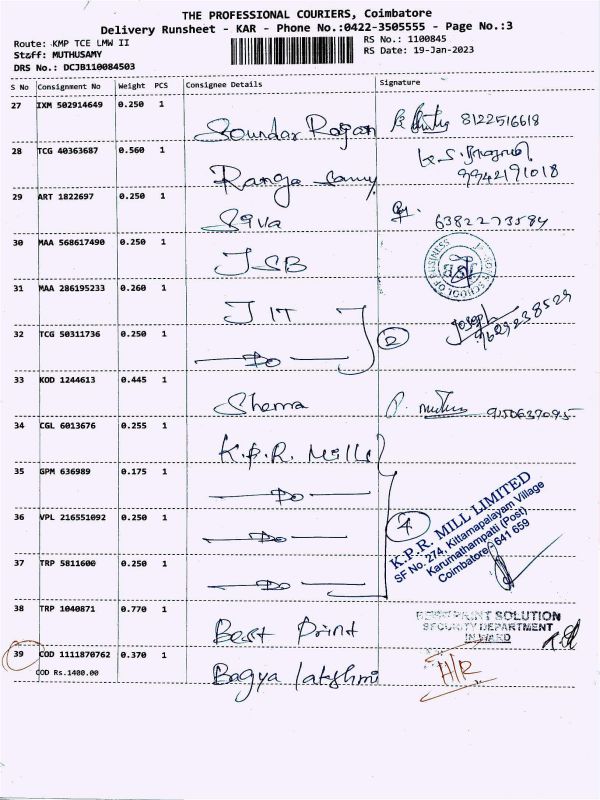 THE PROFESSIONAL COURIERS, Coimbatore
Delivery Runsheet - KAR - Phone No.:0422-3505555 - Page No.:3
Route: KMP TCE LMW II
RS No.: 1100845
Staff: MUTHUSAMY
RS Date: 19-Jan-2023
DRS No.: DCJB110084503
S No Consignment No Weight PCS Consignee Details Signature
27 IXM 502914649 0.250 1 Soundar Rajan 8122516618
28 TCG 40363687 0.560 1 Ranga Samy 9942191018
29 ART 1822697 0.250 1 Siva 6382273584
30 MAA 568617490 0.250 1 JSB
SCHOOL OF BUSINESS
31 MAA 286195233 0.260 1 JIT
32 TCG 50311736 0.250 1 Do 2 Joseph
33 KOD 1244613 0.445 1 Shema
34 CGL 6013676 0.255 1 K.P.R. Mills
35 GPM 636989 0.175 1 Do
36 VPL 216551092 0.250 1 Do 4
K.P.R. MILL LIMITED
SF No. 274, Kittampalayam Village
Karumathampatti (Post)
Coimbatore - 641 659
37 TRP 5811600 0.250 1 Do
38 TRP 1040871 0.770 1 Best Print
BEST PRINT SOLUTION
SECURITY DEPARTMENT
INWARD
39 COD 1111870762 0.370 1 Bagya lakshmi H/R
COD Rs.1400.00